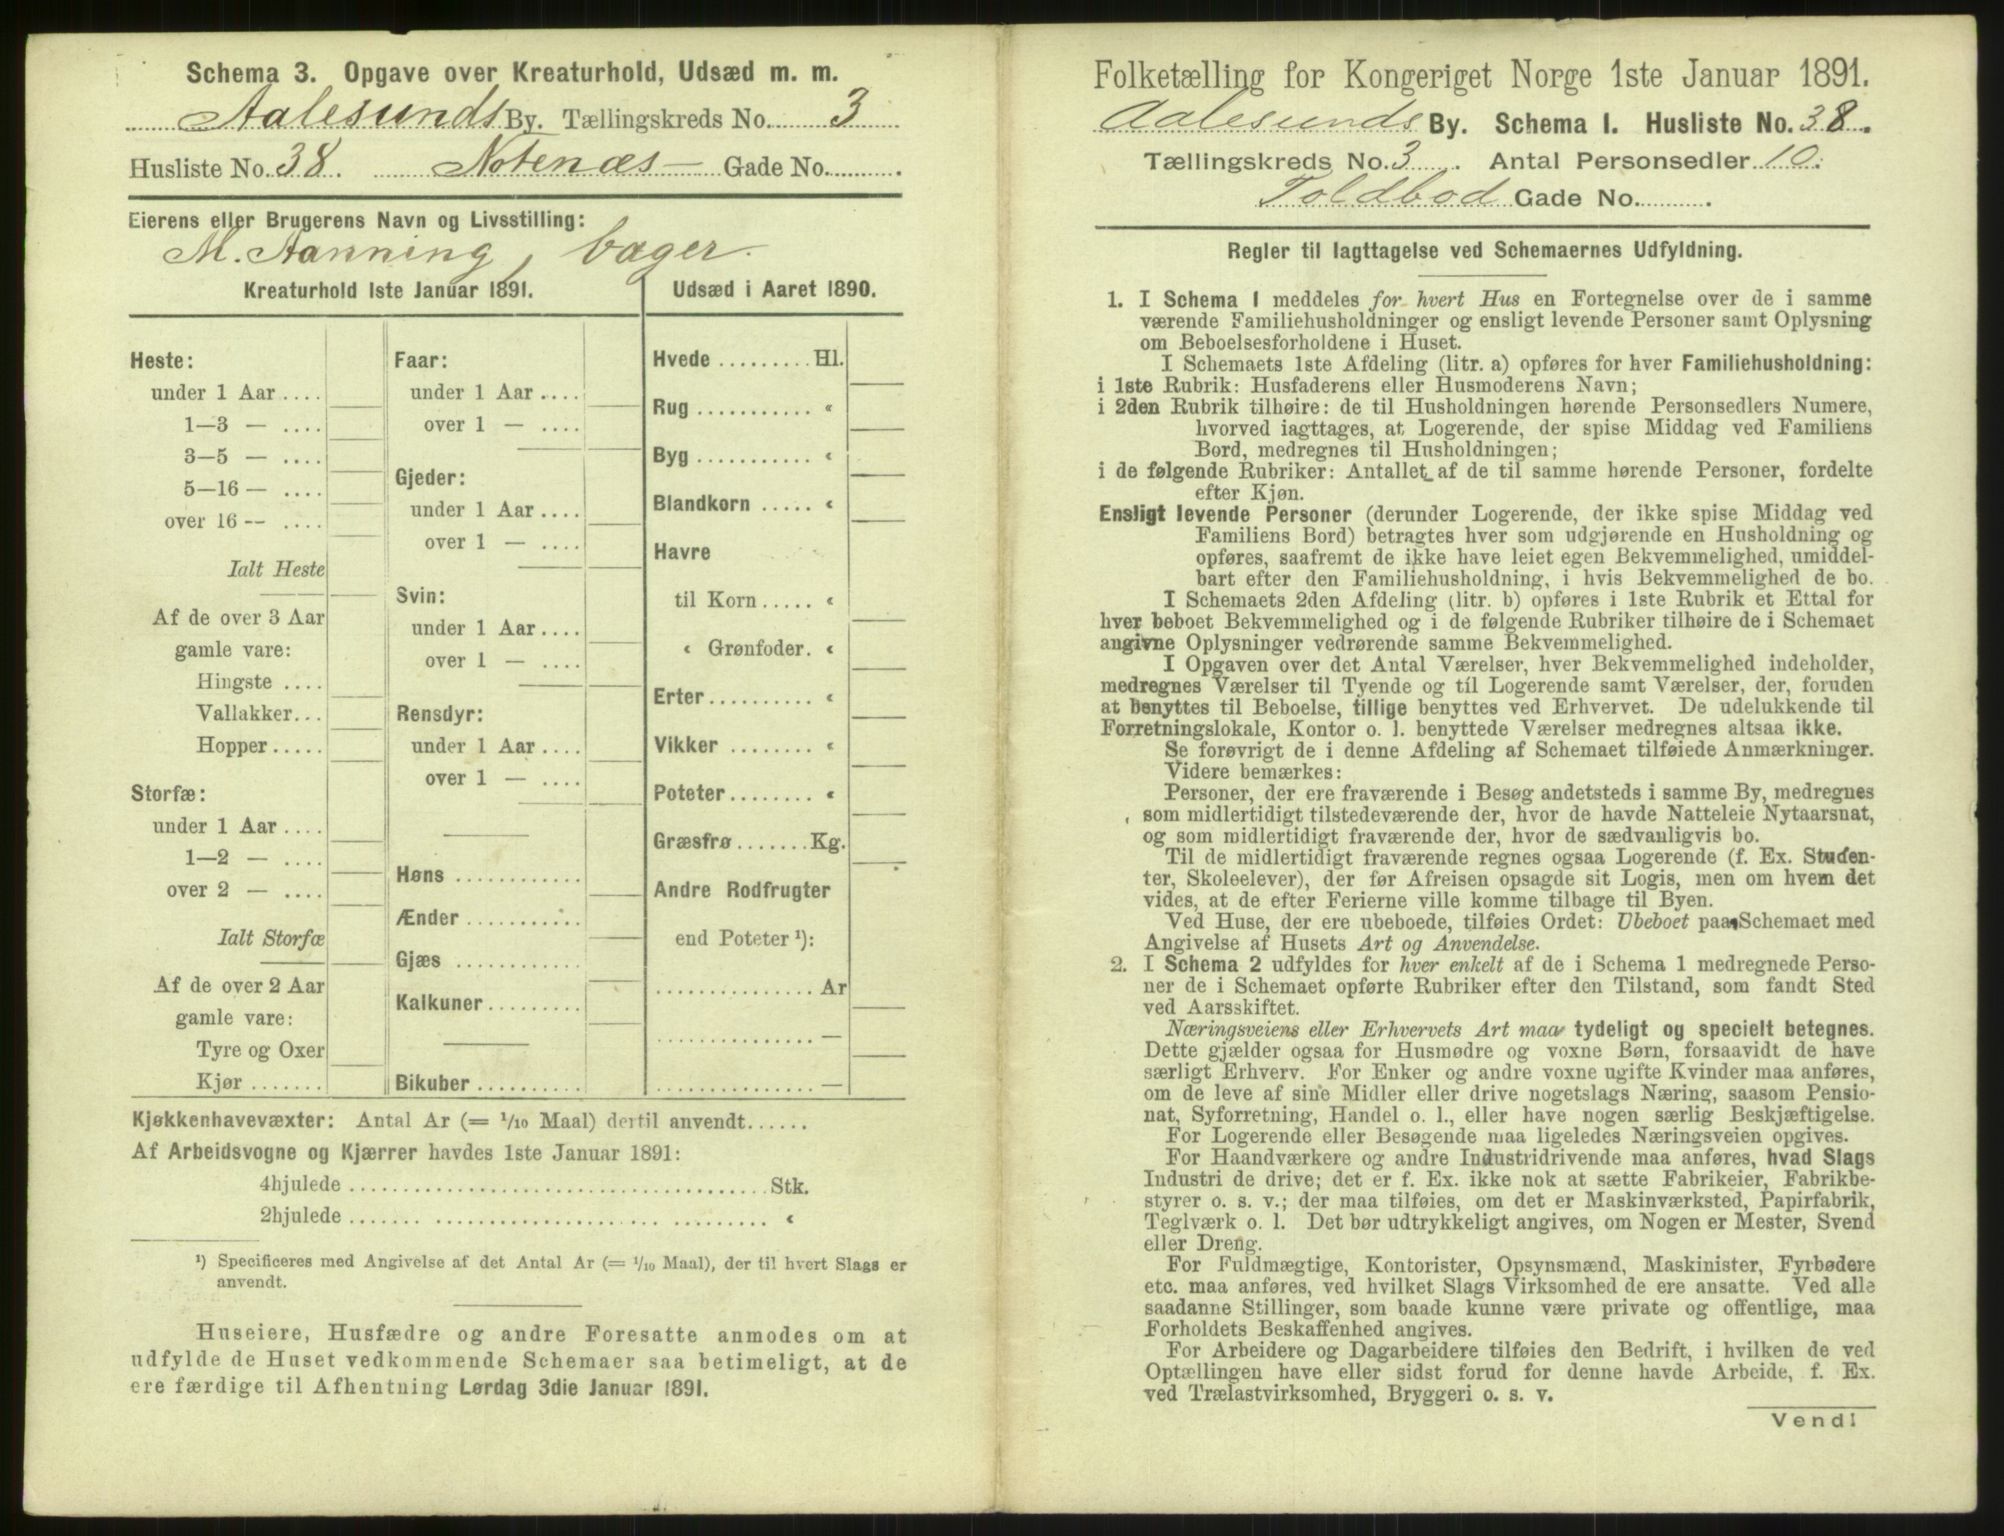 Schema 3. Opgave over Kreaturhold, Udsæd m. m.
Aalesunds By. Tællingskreds No. 3
Husliste No. 38. Notenæs Gade No.
Eierens eller Brugerens Navn og Livsstilling:
M. Aanning, bager.
Kreaturhold 1ste Januar 1891.
Heste:
under 1 Aar ....
1—3 — ....
3—5 — ....
5—16 — ....
over 16 -- ....
Ialt Heste
Af de over 3 Aar
gamle vare:
Hingste ....
Vallakker...
Hopper .....
Storfæ:
under 1 Aar ....
1—2 — ....
over 2 — ....
Ialt Storfæ
Af de over 2 Aar
gamle vare:
Tyre og Oxer
Kjør .......
Faar:
under 1 Aar ....
over 1 — ....
Gjeder:
under 1 Aar ....
over 1 — ....
Svin:
under 1 Aar ....
over 1 — ....
Rensdyr:
under 1 Aar ....
over 1 — ....
Høns ............
Ænder ...........
Gjæs ............
Kalkuner .........
Bikuber ..........
Udsæd i Aaret 1890.
Hvede ......... Hl.
Rug ........... «
Byg ........... «
Blandkorn ..... «
Havre
til Korn ..... «
« Grønfoder. «
Erter .......... «
Vikker ........ «
Poteter ........ «
Græsfrø ....... Kg.
Andre Rodfrugter
end Poteter ¹):
............... Ar
............... —
............... —
Kjøkkenhavevæxter: Antal Ar (= 1/10 Maal) dertil anvendt......
Af Arbeidsvogne og Kjærrer havdes 1ste Januar 1891:
4hjulede ...................................... Stk.
2hjulede ...................................... «
¹) Specificeres med Angivelse af det Antal Ar (= 1/10 Maal), der til hvert Slags er
anvendt.
Huseiere, Husfædre og andre Foresatte anmodes om at
udfylde de Huset vedkommende Schemaer saa betimeligt, at de
ere færdige til Afhentning Lørdag 3die Januar 1891.
Folketælling for Kongeriget Norge 1ste Januar 1891.
Aalesunds By. Schema I. Husliste No. 38.
Tællingskreds No. 3. Antal Personsedler 10.
Toldbod Gade No.
Regler til Iagttagelse ved Schemaernes Udfyldning.
1. I Schema 1 meddeles for hvert Hus en Fortegnelse over de i samme
værende Familiehusholdninger og ensligt levende Personer samt Oplysning
om Beboelsesforholdene i Huset.
I Schemaets 1ste Afdeling (litr. a) opføres for hver Familiehusholdning:
i 1ste Rubrik: Husfaderens eller Husmoderens Navn;
i 2den Rubrik tilhøire: de til Husholdningen hørende Personsedlers Numere,
hvorved iagttages, at Logerende, der spise Middag ved Familiens
Bord, medregnes til Husholdningen;
i de følgende Rubriker: Antallet af de til samme hørende Personer, fordelte
efter Kjøn.
Ensligt levende Personer (derunder Logerende, der ikke spise Middag ved
Familiens Bord) betragtes hver som udgjørende en Husholdning og
opføres, saafremt de ikke have leiet egen Bekvemmelighed, umiddel-
bart efter den Familiehusholdning, i hvis Bekvemmelighed de bo.
I Schemaets 2den Afdeling (litr. b) opføres i 1ste Rubrik et Ettal for
hver beboet Bekvemmelighed og i de følgende Rubriker tilhøire de i Schemaet
angivne Oplysninger vedrørende samme Bekvemmelighed.
I Opgaven over det Antal Værelser, hver Bekvemmelighed indeholder,
medregnes Værelser til Tyende og til Logerende samt Værelser, der, foruden
at benyttes til Beboelse, tillige benyttes ved Erhvervet. De udelukkende til
Forretningslokale, Kontor o. l. benyttede Værelser medregnes altsaa ikke.
Se forøvrigt de i denne Afdeling af Schemaet tilføiede Anmærkninger.
Videre bemærkes:
Personer, der ere fraværende i Besøg andetsteds i samme By, medregnes
som midlertidigt tilstedeværende der, hvor de havde Natteleie Nytaarsnat,
og som midlertidigt fraværende der, hvor de sædvanligvis bo.
Til de midlertidigt fraværende regnes ogsaa Logerende (f. Ex. Studen-
ter, Skoleelever), der før Afreisen opsagde sit Logis, men om hvem det
vides, at de efter Ferierne ville komme tilbage til Byen.
Ved Huse, der ere ubeboede, tilføies Ordet: Ubeboet paa Schemaet med
Angivelse af Husets Art og Anvendelse.
2. I Schema 2 udfyldes for hver enkelt af de i Schema 1 medregnede Perso-
ner de i Schemaet opførte Rubriker efter den Tilstand, som fandt Sted
ved Aarsskiftet.
Næringsveiens eller Erhvervets Art maa tydeligt og specielt betegnes.
Dette gjælder ogsaa for Husmødre og voxne Børn, forsaavidt de have
særligt Erhverv. For Enker og andre voxne ugifte Kvinder maa anføres,
om de leve af sine Midler eller drive nogetslags Næring, saasom Pensio-
nat, Syforretning, Handel o. l., eller have nogen særlig Beskjæftigelse.
For Logerende eller Besøgende maa ligeledes Næringsveien opgives.
For Haandværkere og andre Industridrivende maa anføres, hvad Slags
Industri de drive; det er f. Ex. ikke nok at sætte Fabrikeier, Fabrikbe-
styrer o. s. v.; der maa tilføies, om det er Maskinværksted, Papirfabrik,
Teglværk o. l. Det bør udtrykkeligt angives, om Nogen er Mester, Svend
eller Dreng.
For Fuldmægtige, Kontorister, Opsynsmænd, Maskinister, Fyrbødere
etc. maa anføres, ved hvilket Slags Virksomhed de ere ansatte. Ved alle
saadanne Stillinger, som baade kunne være private og offentlige, maa
Forholdets Beskaffenhed angives.
For Arbeidere og Dagarbeidere tilføies den Bedrift, i hvilken de ved
Optællingen have eller sidst forud for denne havde Arbeide, f. Ex.
ved Trælastvirksomhed, Bryggeri o. s. v.
Vend!